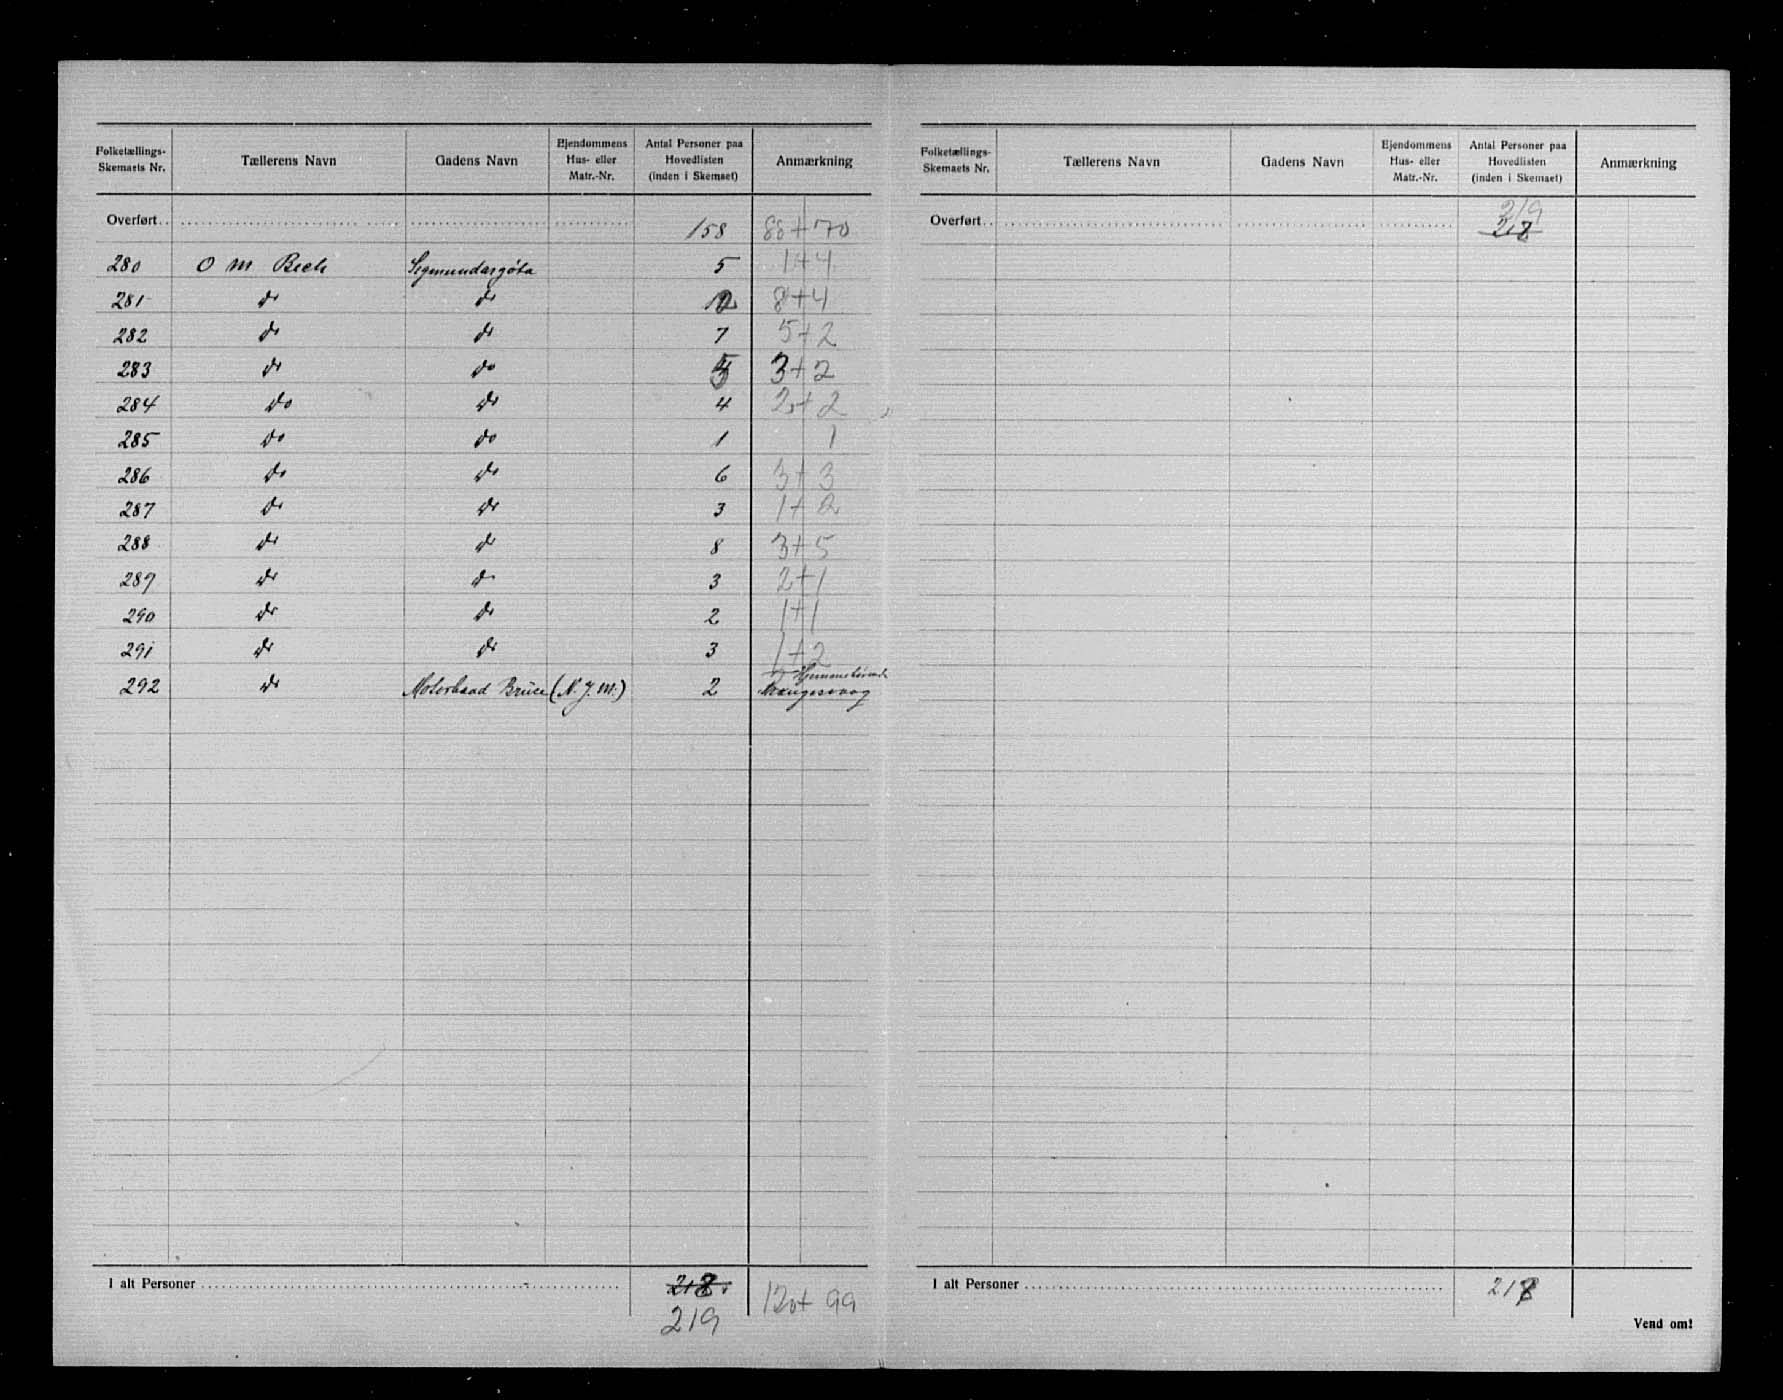 Folketællings-Skemaets Nr. Tællerens Navn Gadens Navn Ejendommens Hus- eller Matr.-Nr. Antal Personer paa Hovedlisten (inden i Skemaet) Anmærkning
Overført 158 88+70
280 O M Bech Sigmundargøta 5 1+4
281 do do 12 8+4
282 do do 7 5+2
283 do do 5 3+2
284 do do 4 2+2
285 do do 1 1
286 do do 6 3+3
287 do do 3 1+2
288 do do 8 3+5
289 do do 3 2+1
290 do do 2 1+1
291 do do 3 1+2
292 do Motorbaad Bruce (N. J. M.) 2 Hjemmehørende
Vaagsvaag
I alt Personer 218 120+99
219
Folketællings-Skemaets Nr. Tællerens Navn Gadens Navn Ejendommens Hus- eller Matr.-Nr. Antal Personer paa Hovedlisten (inden i Skemaet) Anmærkning
219
Overført 218
I alt Personer 218
Vend om!